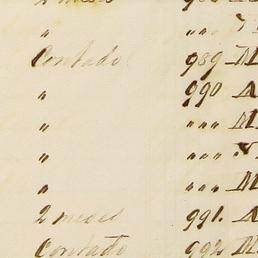 2 meses
" " " "
Contado 989
" 990
" " " "
" " " "
" " " "
2 meses 991.
Contado 992